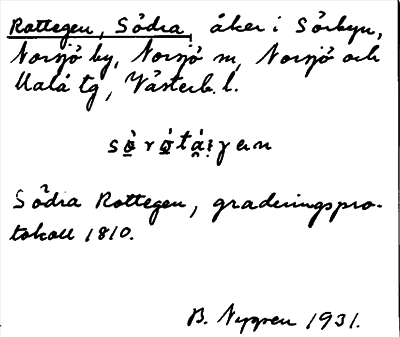 Rottegen, Södra, åker i Sörbyn,
Norsjö by, Norsjö sn, Norsjö och
Malå tg, Västerb. l.
Södra Rottegen, graderingspro-
tokoll 1810.
B. Nygren 1931.